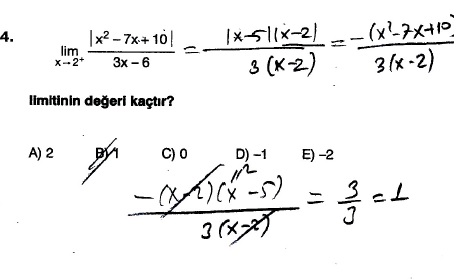 4. lim x→2⁺ |x² – 7x + 10| / 3x – 6 = |x–5||x–2| / 3(x–2) = –(x²–7x+10) / 3(x–2)
limitinin değeri kaçtır?
A) 2 B) 1 C) 0 D) –1 E) –2
–(x–2)(x–5) / 3(x–2) = 3/3 = 1